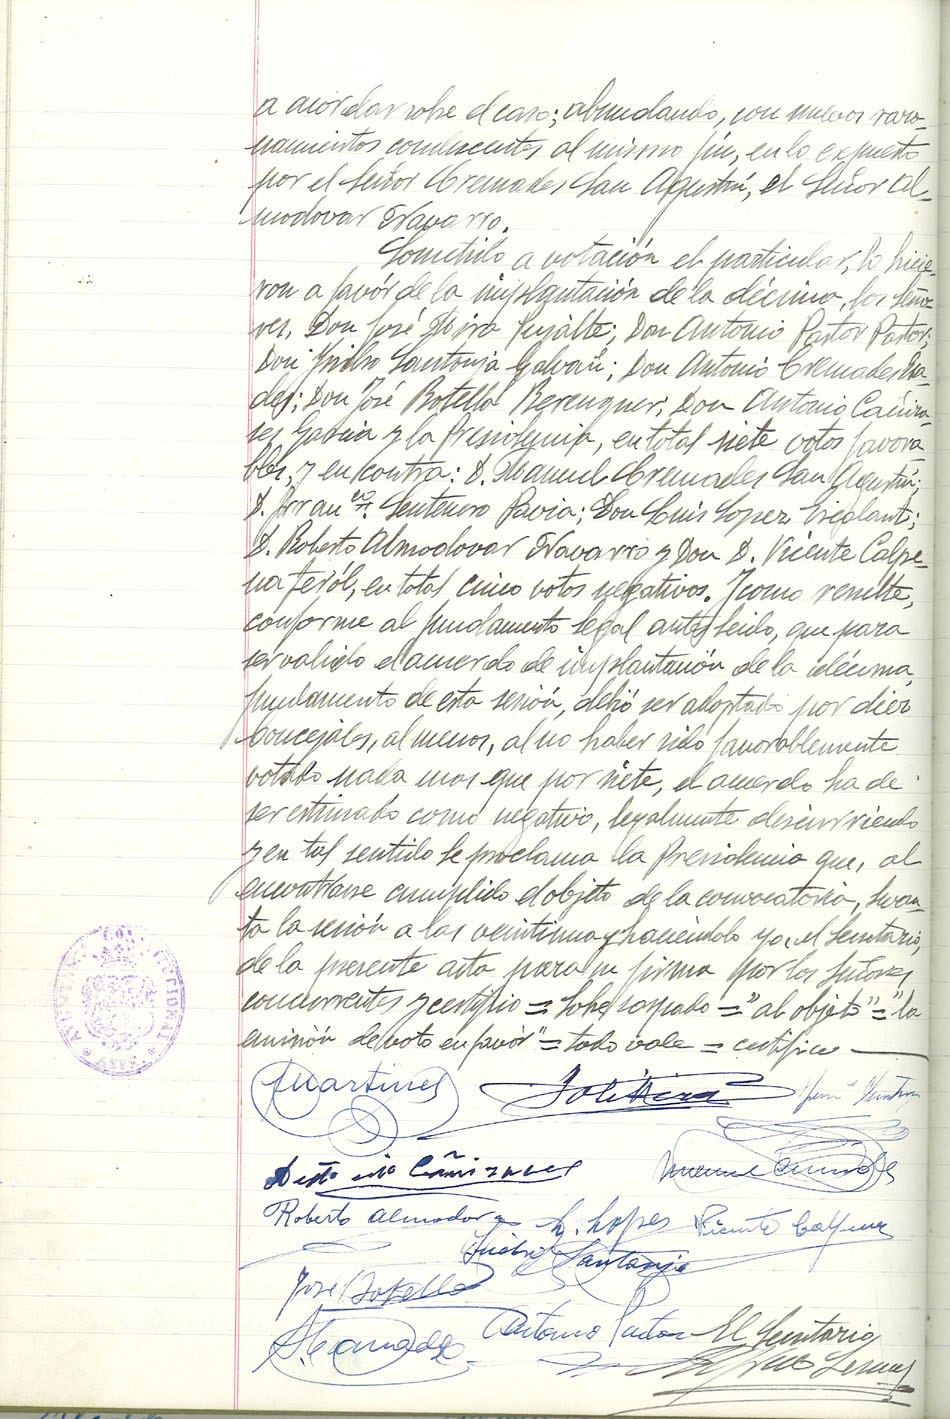 a acordar sobre el caso; abundando, con nuevos razo-
namientos conducentes al mismo fin, en lo expuesto
por el Señor Cremades San Agustín, el Señor Al-
modovar Navarro.
Sometido a votación el particular, lo hicie-
ron a favór de la implantación de la décima, los seño-
res, Don José Mira Don Antonio Pastor Pastor;
Don Isidro Santonja Galvañ; Don Antonio Cremades
Don José Botella Berenguer, Don Antonio Cañiza-
res García y la Presidencia, en total siete votos favora-
bles, y en contra: D. Manuel Cremades San Agustín;
D. Fran co Sentenero Pavia; Don Luis Lopez
D. Roberto Almodovar Navarro y Don D. Vicente Calpe-
na en total cinco votos negativos. Y como resulte,
conforme al fundamento legal antes leido, que para
ser valido el acuerdo de implantación de la décima,
fundamento de esta sesión, debió ser adoptado por diez
Concejales, al menos, al no haber sido favorablemente
votado nada mas que por siete, el acuerdo ha de
ser estimado como negativo, legalmente discurriendo
y en tal sentido se proclama la Presidencia que, al
encontrarse cumplido el objeto de la convocatoria, levan-
ta la sesión a las veintiuna y haciéndolo yo, el Secretario,
de la presente acta para su firma por los Señores
concurrentes y certifico = Sobre raspado = "al objeto" = "la
emisión de voto en favór" = todo vale = certifico
AYUNTAMIENTO CONSTITUCIONAL
Martinez José Mira
Antonio Cañizares Manuel Cremades
Roberto Almodovar L. Lopez Vicente Calpena
Isidro Santonja
José Botella
A. Cremades Antonio Pastor El Secretario